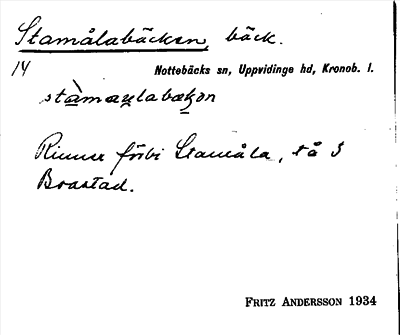 Stamålabäcken, bäck.
14 Nottebäcks sn, Uppvidinge hd, Kronob. l.
Rinner förbi Stamåla, tå i
Braastad.
FRITZ ANDERSSON 1934